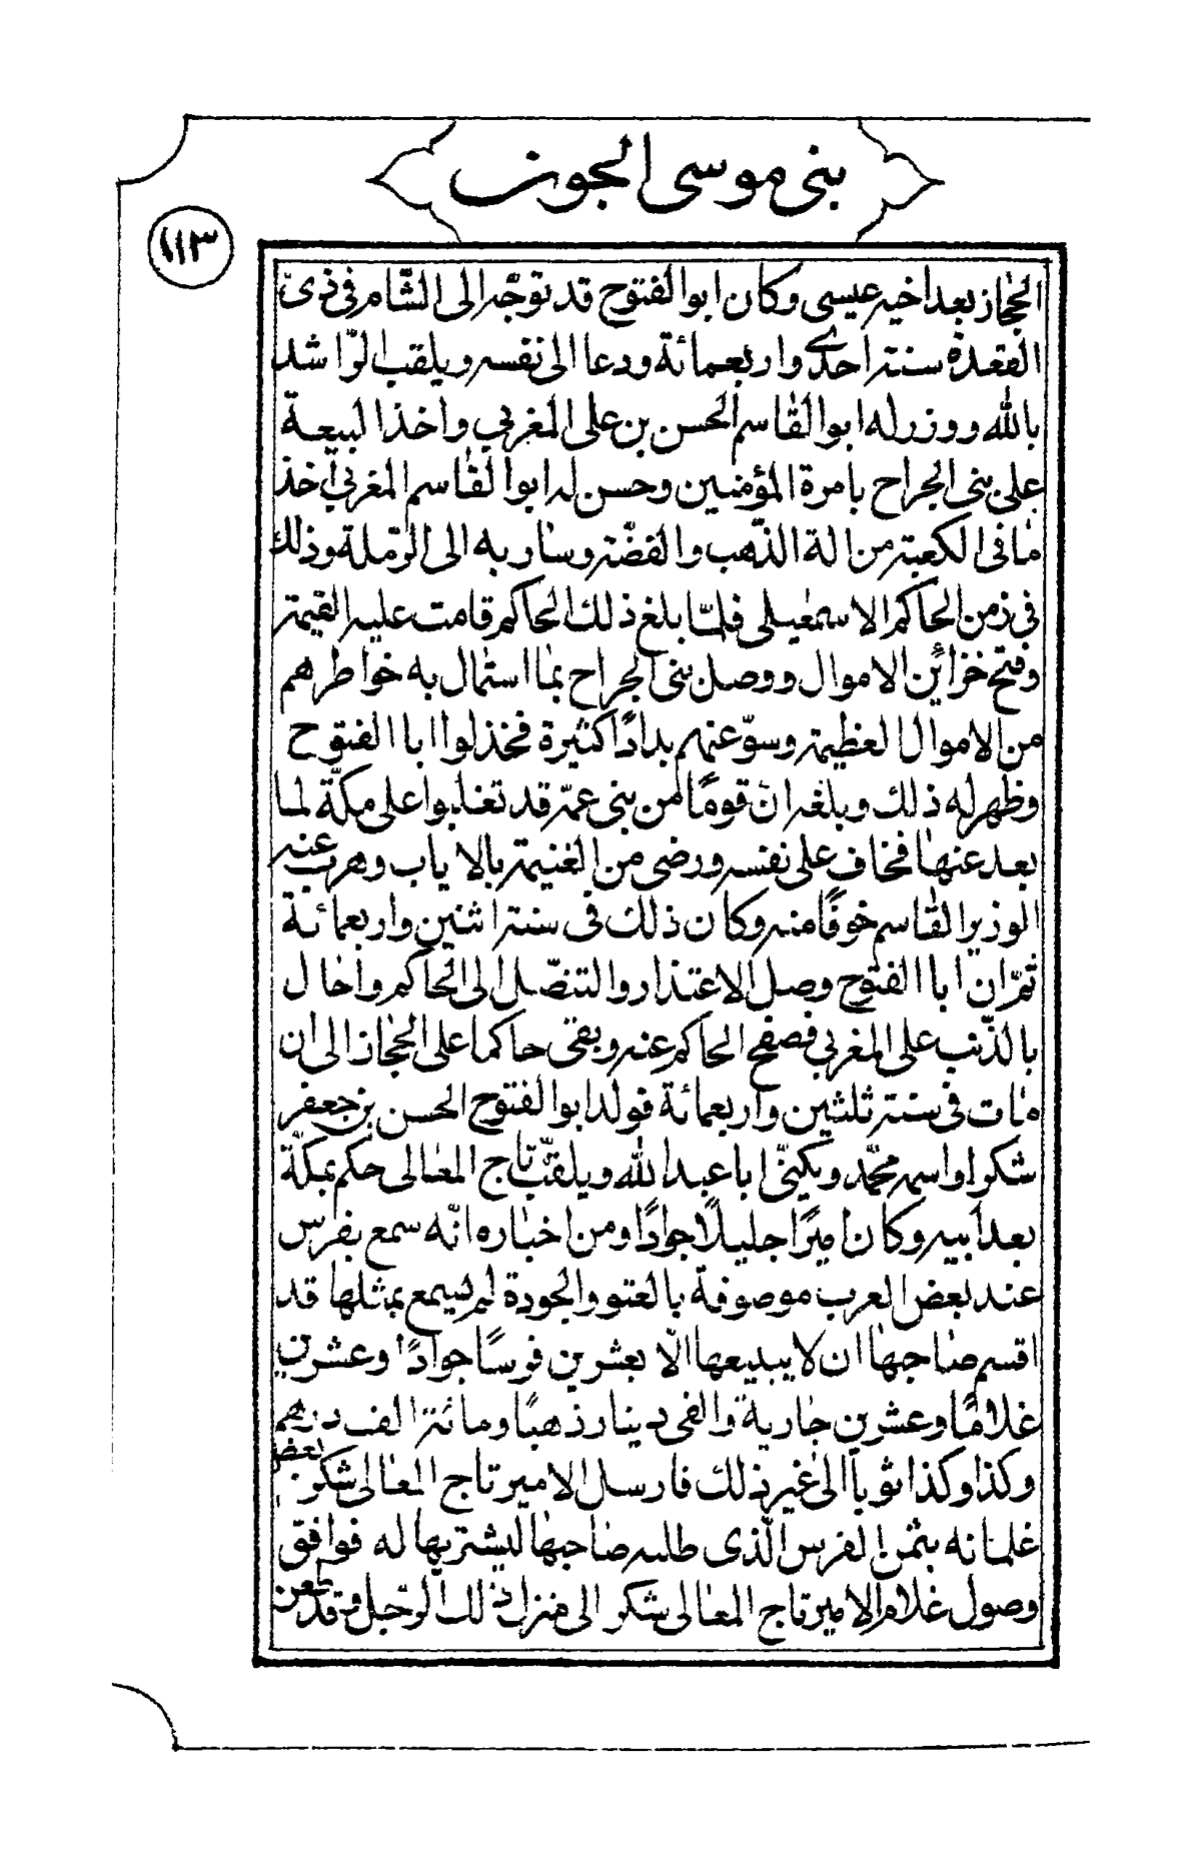 بنى موسى الجون
١١٣
الحجاز بعد اخيه عيسى وكان ابو الفتوح قد توجّه الى الشّام فى ذى
القعدة سنة احدى واربعمائة ودعا الى نفسه ويلقب الرّاشد
بالله ووزر له ابو القاسم الحسن بن على المغربي واخذ البيعة
على بنى الجراح بامرة المؤمنين وحسن له ابو القاسم المغربي اخذ
ما فى الكعبة من الة الذّهب والفضّة وسار به الى الرّملة وذلك
فى زمن الحاكم الاسمعيلى فلمّا بلغ ذلك الحاكم قامت عليه القيمة
وفتح خزائن الاموال ووصل بنى الجراح بما استمال به خواطرهم
من الاموال العظيمة وسوّغهم بلادًا كثيرة فخذلوا ابا الفتوح
وظهر له ذلك وبلغه انّ قومًا من بنى عمّه قد تغلبوا على مكّة لما
بعد عنها فخاف على نفسه ورضى من الغنيمة بالاياب وهرب عنه
الوزير القاسم خوفًا منه وكان ذلك فى سنة اثنين واربعمائة
ثمّ انّ ابا الفتوح وصل الاعتذار والتنصّل الى الحاكم واحال
بالذّنب على المغربي فصفح الحاكم عنه وبقى حاكما على الحجاز الى ان
مات فى سنة ثلثين واربعمائة فولد ابو الفتوح الحسن بن جعفر
شكرا واسمه محمّد ويكنّى ابا عبد الله ويلقّب تاج المعالى حكم بمكّة
بعد ابيه وكان اميرًا جليلًا جوادًا ومن اخباره انّه سمع بفرس
عند بعض العرب موصوفة بالعتو والجودة لم يسمع بمثلها قد
اقسم صاحبها ان لا يبيعها الّا بعشرين فرسًا جوادًا وعشرين
غلامًا وعشرين جارية والفى دينار ذهبًا ومائة الف درهم
وكذا وكذا ثوبا الى غير ذلك فارسل الامير تاج المعالى شكر بعض
غلمانه بثمن الفرس الّذى طلبه صاحبها ليشتريها له فوافق
وصول غلام الامير تاج المعالى شكر الى منزل ذلك الرّجل وقد